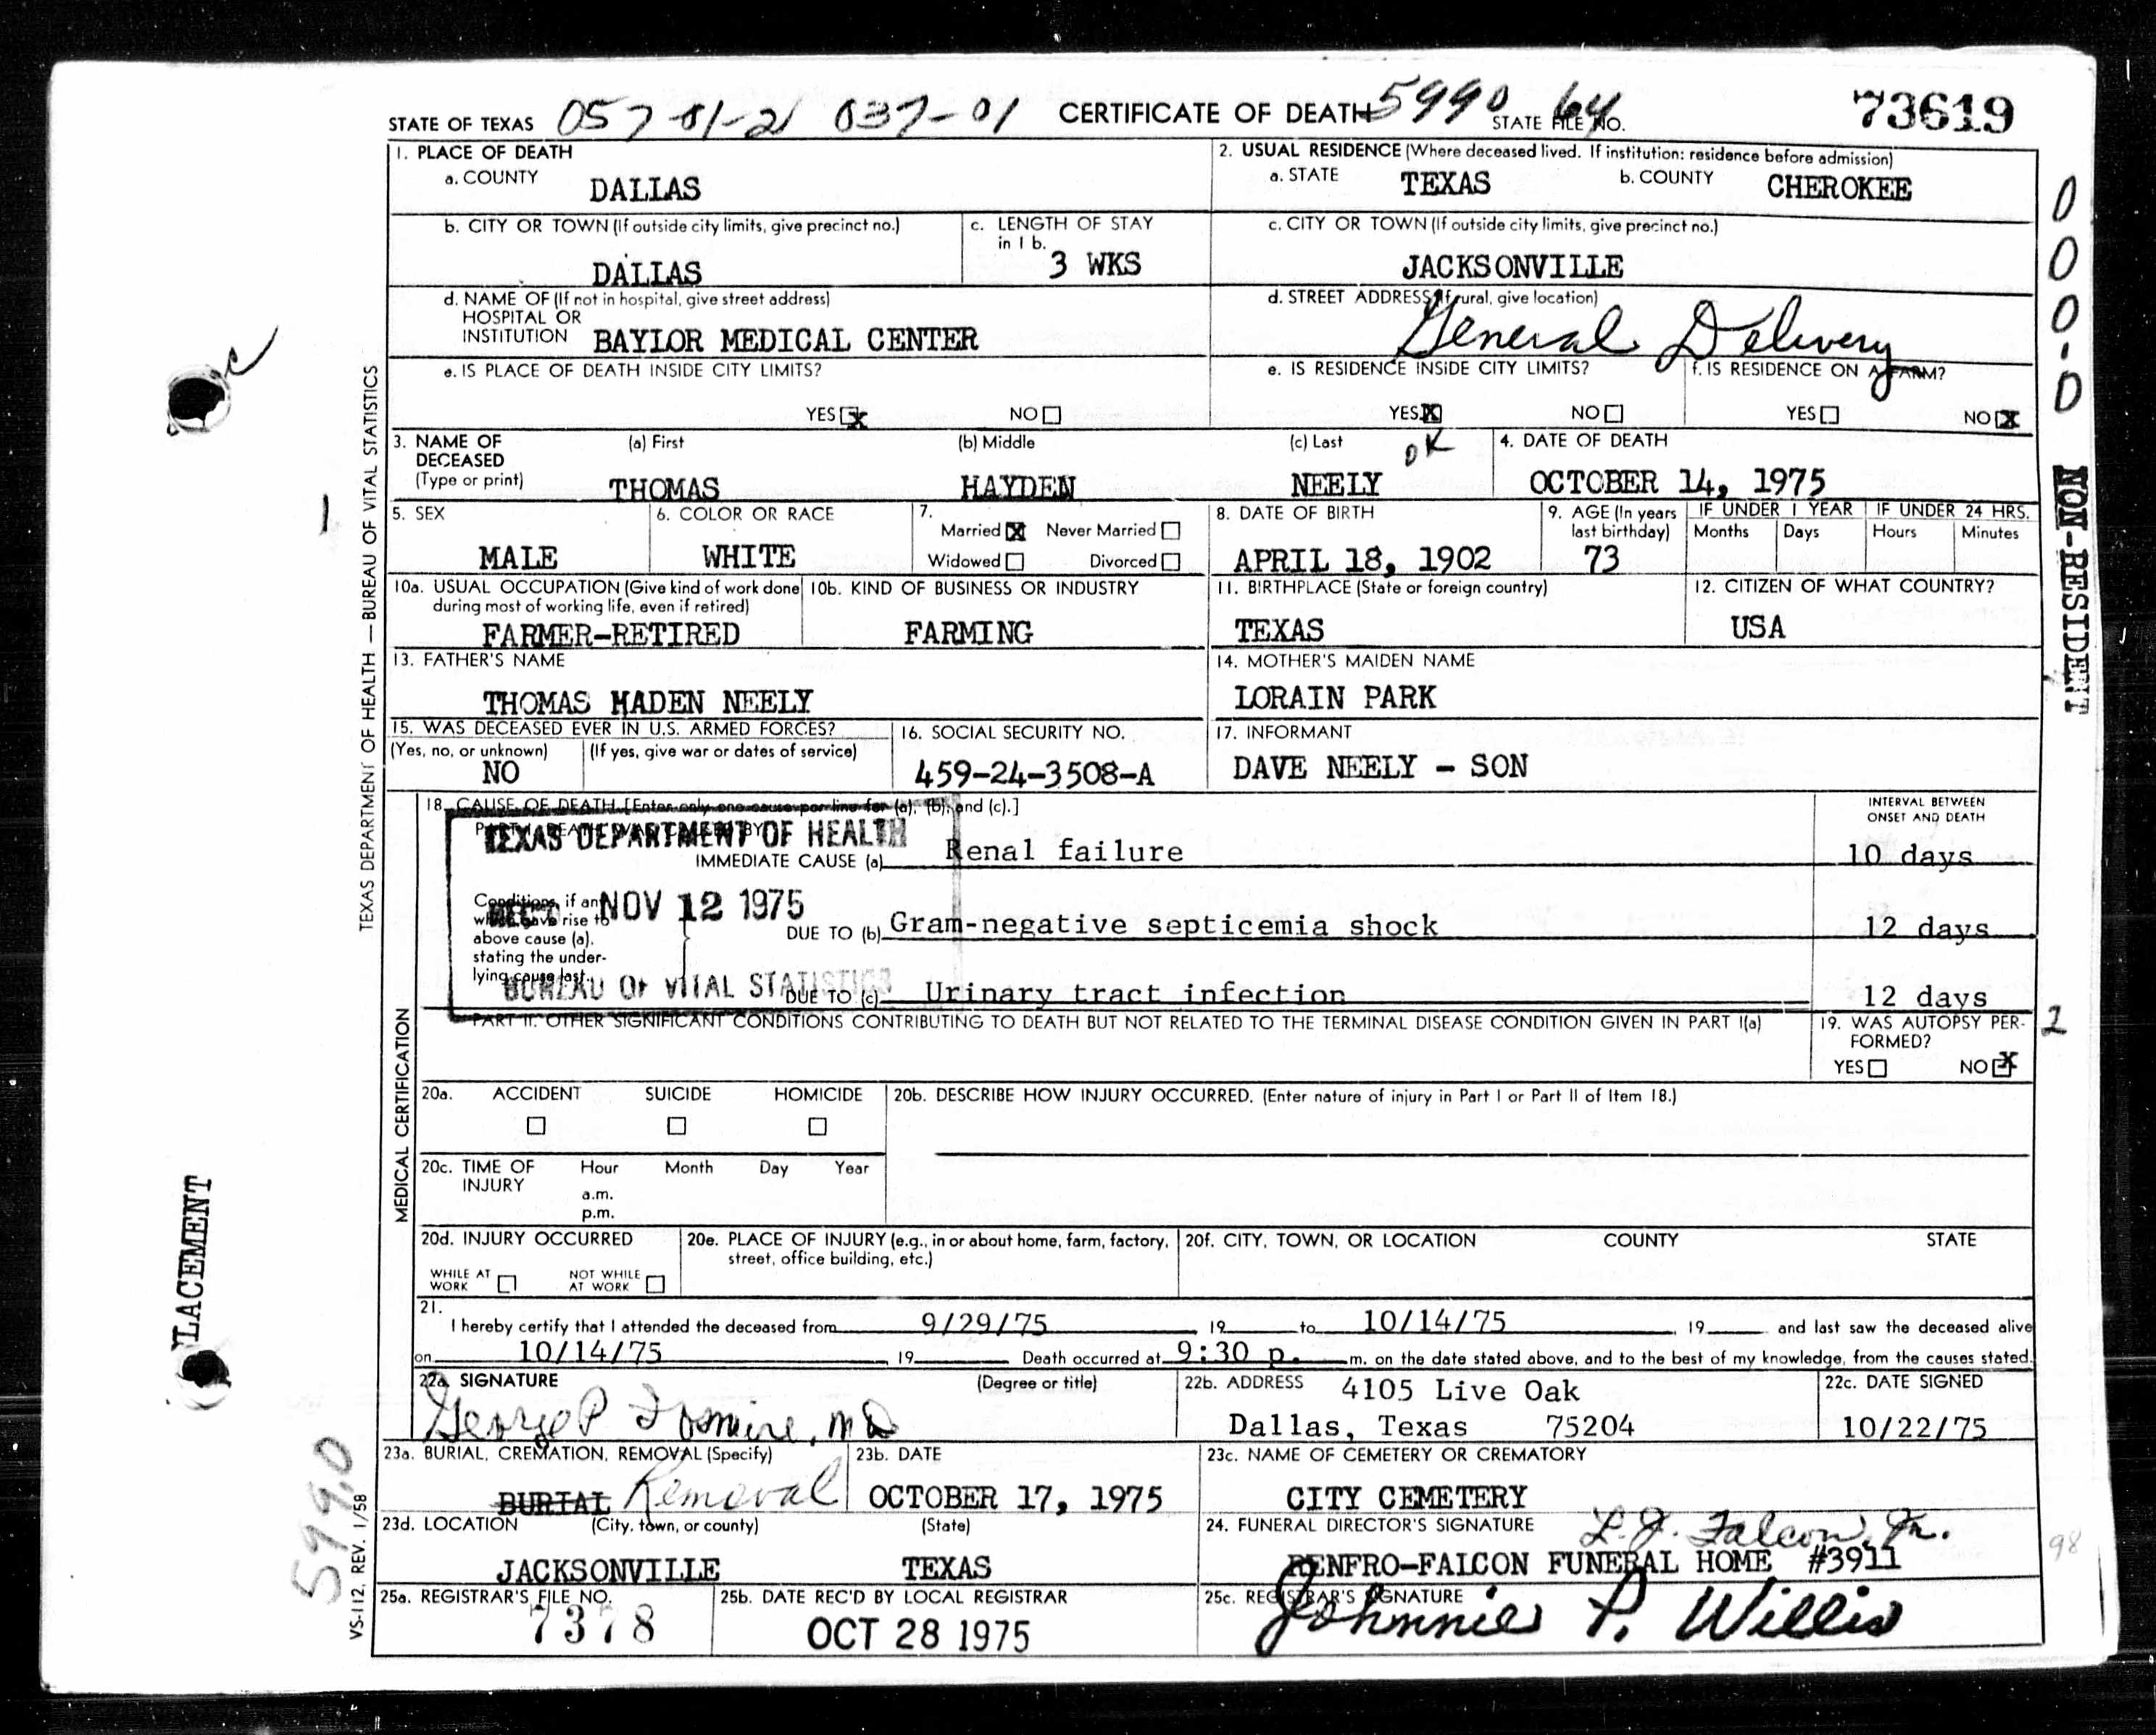 STATE OF TEXAS 057-01-21 037-01 CERTIFICATE OF DEATH 5990 64 STATE FILE NO. 73619
1. PLACE OF DEATH
a. COUNTY DALLAS
2. USUAL RESIDENCE (Where deceased lived. If institution: residence before admission)
a. STATE TEXAS b. COUNTY CHEROKEE
b. CITY OR TOWN (If outside city limits, give precinct no.)
DALLAS
c. LENGTH OF STAY
in 1 b.
3 WKS
c. CITY OR TOWN (If outside city limits, give precinct no.)
JACKSONVILLE
d. NAME OF (If not in hospital, give street address)
HOSPITAL OR
INSTITUTION BAYLOR MEDICAL CENTER
d. STREET ADDRESS (If rural, give location)
General Delivery
e. IS PLACE OF DEATH INSIDE CITY LIMITS?
YES X NO
e. IS RESIDENCE INSIDE CITY LIMITS?
YES X NO
f. IS RESIDENCE ON A FARM?
YES NO X
3. NAME OF
DECEASED
(Type or print)
(a) First (b) Middle (c) Last OK
THOMAS HAYDEN NEELY
4. DATE OF DEATH
OCTOBER 14, 1975
5. SEX
MALE
6. COLOR OR RACE
WHITE
7.
Married X Never Married
Widowed Divorced
8. DATE OF BIRTH
APRIL 18, 1902
9. AGE (In years
last birthday)
73
IF UNDER 1 YEAR
Months Days
IF UNDER 24 HRS.
Hours Minutes
10a. USUAL OCCUPATION (Give kind of work done
during most of working life, even if retired)
FARMER-RETIRED
10b. KIND OF BUSINESS OR INDUSTRY
FARMING
11. BIRTHPLACE (State or foreign country)
TEXAS
12. CITIZEN OF WHAT COUNTRY?
USA
13. FATHER'S NAME
THOMAS MADEN NEELY
14. MOTHER'S MAIDEN NAME
LORAIN PARK
15. WAS DECEASED EVER IN U.S. ARMED FORCES?
(Yes, no, or unknown) (If yes, give war or dates of service)
NO
16. SOCIAL SECURITY NO.
459-24-3508-A
17. INFORMANT
DAVE NEELY - SON
18. CAUSE OF DEATH [Enter only one cause per line for (a), (b), and (c).]
INTERVAL BETWEEN
ONSET AND DEATH
PART I. DEATH WAS CAUSED BY
TEXAS DEPARTMENT OF HEALTH
IMMEDIATE CAUSE (a) Renal failure 10 days
Conditions, if any
which gave rise to
above cause (a).
stating the under-
lying cause last.
REC'D NOV 12 1975
DUE TO (b) Gram-negative septicemia shock 12 days
BUREAU OF VITAL STATISTICS
DUE TO (c) Urinary tract infection 12 days
PART II. OTHER SIGNIFICANT CONDITIONS CONTRIBUTING TO DEATH BUT NOT RELATED TO THE TERMINAL DISEASE CONDITION GIVEN IN PART I(a)
19. WAS AUTOPSY PER-
FORMED?
YES NO X
2
20a. ACCIDENT SUICIDE HOMICIDE
20b. DESCRIBE HOW INJURY OCCURRED. (Enter nature of injury in Part I or Part II of Item 18.)
20c. TIME OF
INJURY
Hour Month Day Year
a.m.
p.m.
20d. INJURY OCCURRED
WHILE AT
WORK
NOT WHILE
AT WORK
20e. PLACE OF INJURY (e.g., in or about home, farm, factory,
street, office building, etc.)
20f. CITY, TOWN, OR LOCATION COUNTY STATE
21.
I hereby certify that I attended the deceased from 9/29/75, 19 to 10/14/75, 19 and last saw the deceased alive
on 10/14/75, 19 Death occurred at 9:30 p. m. on the date stated above, and to the best of my knowledge, from the causes stated.
22a. SIGNATURE (Degree or title)
George P M.D.
22b. ADDRESS 4105 Live Oak
Dallas, Texas 75204
22c. DATE SIGNED
10/22/75
23a. BURIAL, CREMATION, REMOVAL (Specify)
BURIAL Removal
23b. DATE
OCTOBER 17, 1975
23c. NAME OF CEMETERY OR CREMATORY
CITY CEMETERY
23d. LOCATION (City, town, or county) (State)
JACKSONVILLE TEXAS
24. FUNERAL DIRECTOR'S SIGNATURE L. J. Falcon, Jr.
RENFRO-FALCON FUNERAL HOME #3911
25a. REGISTRAR'S FILE NO.
7378
25b. DATE REC'D BY LOCAL REGISTRAR
OCT 28 1975
25c. REGISTRAR'S SIGNATURE
Johnnie P. Willis
TEXAS DEPARTMENT OF HEALTH — BUREAU OF VITAL STATISTICS
MEDICAL CERTIFICATION
VS-112, REV. 1/58
599.0
LACEMENT
1
c
000-0
NON-RESIDENT
98